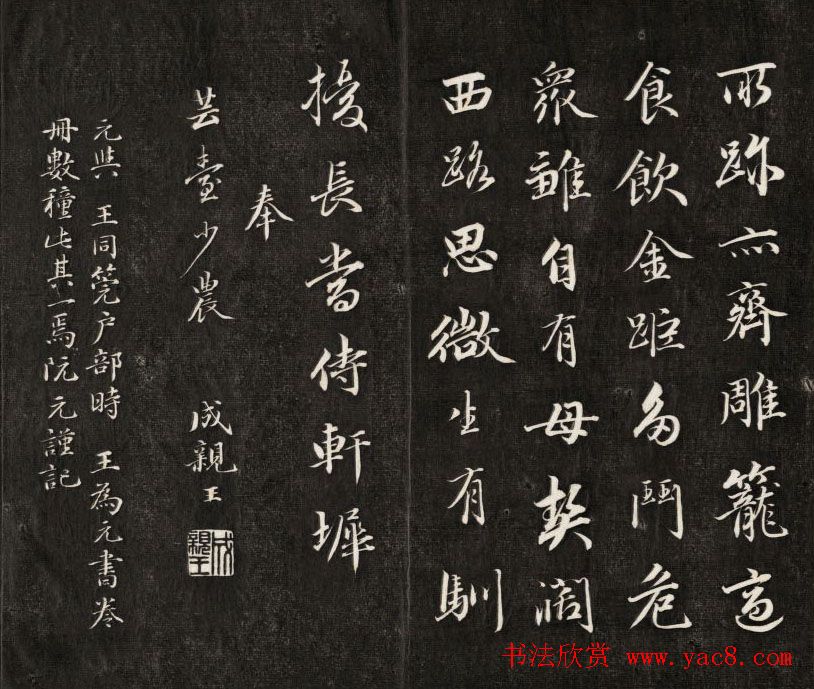 所跡亦齊雕籠高
食飲金距多鬥危
衆雛自有母契闊
西路思微生有馴
擾長當侍軒墀
奉
芸臺少農 成親王
成親王
元與 王同筦户部時 王為元書卷
冊數種此其一焉阮元謹記
书法欣赏 www.yac8.com